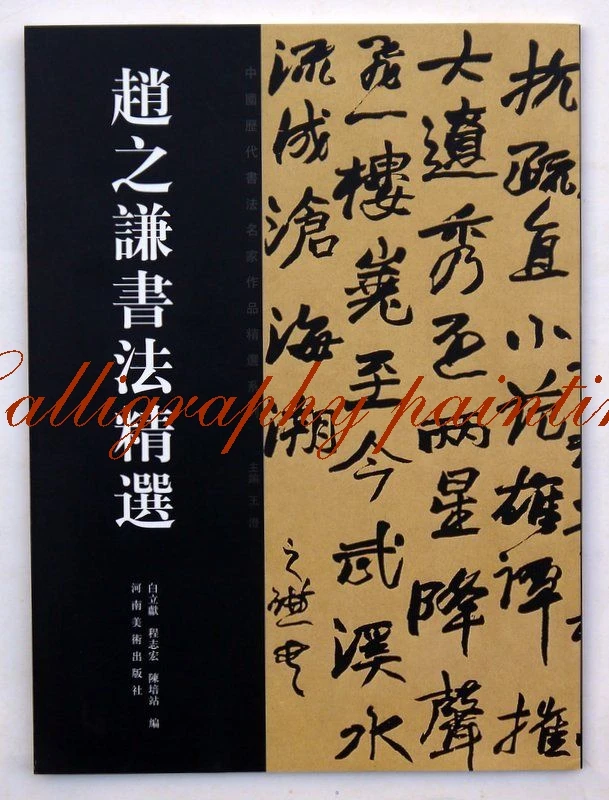 趙之謙書法精選
中國歷代書法名家作品精選系
主編 王澄
白立獻 程志宏 陳培站 編
河南美術出版社
抗疏小雄譚摧
大秀两星降聲
一樓至今武溪水
流成滄海
之謙
Calligraphy paintin